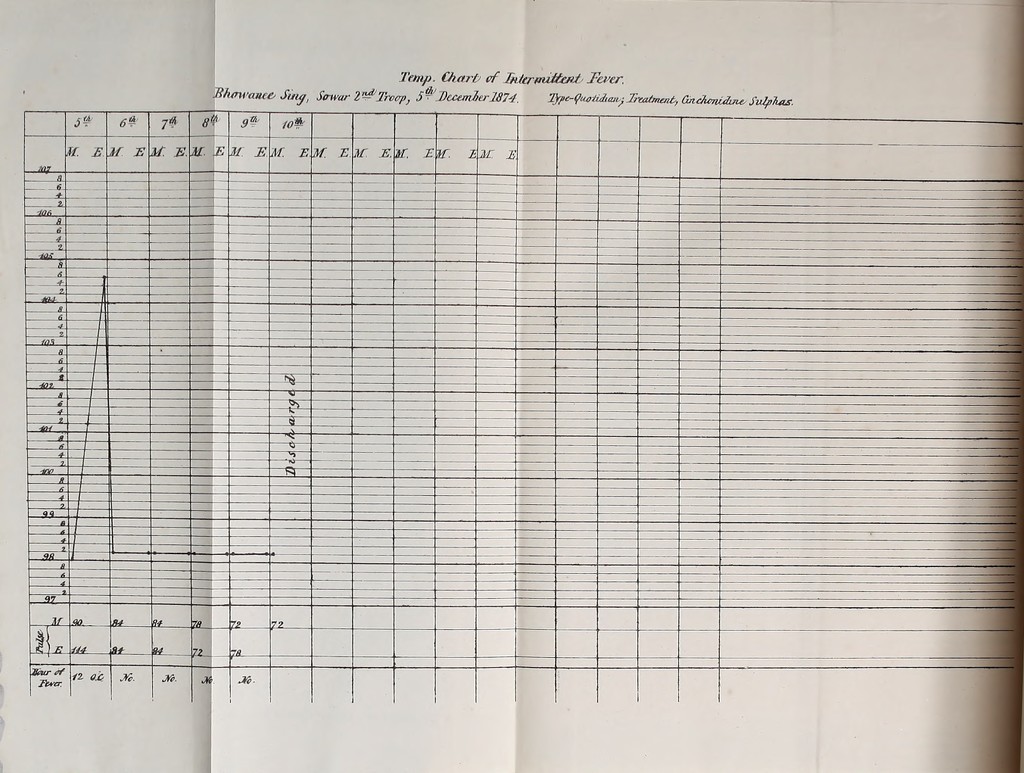 Temp. Chart of Intermittent Fever.
Bhowanee Sing, Sowar 2nd Troop, 5th December 1874. Type-Quotidian; Treatment, Cinchonidine Sulphas.
5th 6th 7th 8th 9th 10th
M. E. M E M. E. M. E M E M. E. M. E. M E. M. E M. E M. E.
107
8
6
4
2
106
8
6
4
2
105
8
6
4
2
104
8
6
4
2
103
8
6
4
2
102
8
6
4
2
101
8
6
4
2
100
8
6
4
2
99
8
6
4
2
98
8
6
4
2
97
Discharged
Pulse
M 90 84 84 78 72 72
E 114 84 84 72 78
Hour of Fever. 12 O.C. No. No. No. No.